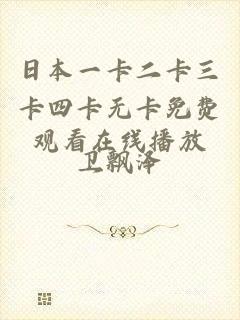 日本一卡二卡三
卡四卡无卡免费
观看在线播放
卫飘泽